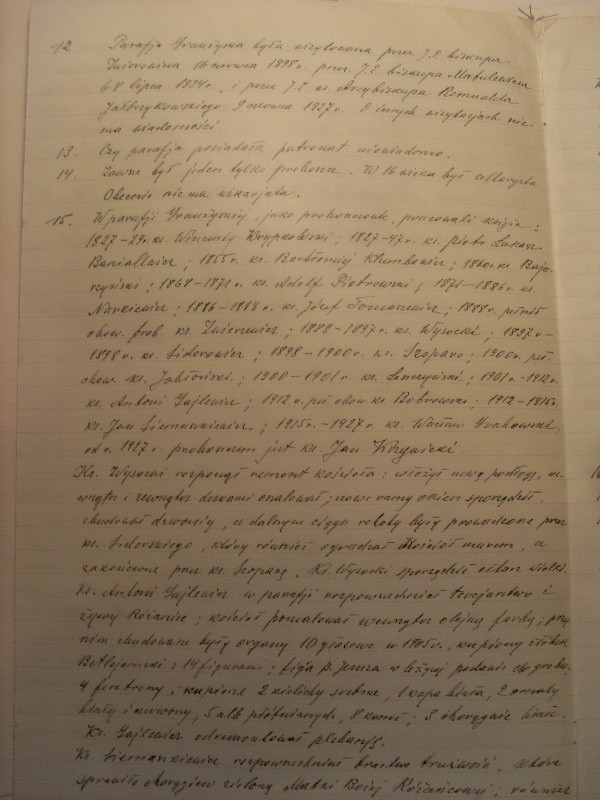 12 Parafja Graużyska była wizytowana przez J.E. biskupa
Zwierowicza 16 czerwca 1898 r. przez J.E. biskupa Matulewicza
6-8 lipca 1924 r., i przez J.E. ks. Arcybiskupa Romualda
Jałbrzykowskiego 9 czerwca 1927 r. O innych wizytacjach nie-
ma wiadomości
13. Czy parafja posiadała patronat niewiadomo.
14. Zawsze był jeden tylko proboszcz. W 16 wieku był altarysta.
Obecnie nie ma wikarjata.
15. W parafji Graużyskiej, jako proboszczowie, pracowali księża:
1827-29 r. ks. Wincenty; 1827-47 r. ks. Piotr Łukasz
; 1855 r. ks. Bartłomiej; 1860 r. ks.
; 1868-1871 r. ks. Adolf Piotrowski; 1871-1886 r. ks.
Narkiewicz; 1886-1888 r. ks. Józef Tomaszewicz; 1888 r. pełnił
obow. prob. ks.; 1888-1897 r. ks. Wysocki; 1897 r.-
1898 r. ks. Sidorowicz; 1898-1900 r. ks. Szopara; 1900 r. peł.
obow. ks. Jabłoński; 1900-1901 r. ks.; 1901 r.-1912 r.
ks. Antoni Gajlewicz; 1912 r. peł. obow. ks. Bobrowski; 1912-1915 r.
ks. Jan Siemaszkiewicz; 1915 r.-1927 r. ks. Wacław Grabowski
od r. 1927 proboszczem jest ks. Jan
Ks. Wysocki rozpoczął remont kościoła: włożył nową podłogę, we-
wnątrz i zewnątrz deskami oszalował; nowe ramy okien sporządził,
zbudował dzwonnicę, w dalszym ciągu roboty były prowadzone przez
ks. Sidorskiego, który również ogradzał kościół murem, a
zakończone przez ks. Szoparę. Ks. Wysocki sporządził ołtarz wielki.
Ks. Antoni Gajlewicz w parafji rozpowszechniał tercjarstwo i
żywy Różaniec; kościół pomalował wewnątrz olejną farbą; przy
nim zbudowane były organy 10 głosowe w 1905 r., kupiony żłóbek
Betlejemski z 14 figurami; figa p. Jezusa w leżącej postawie do grobu;
4 feretrony; kupione 2 kielichy srebrne, 1 kapa biała, 2 ornaty
biały i czerwony, 5 alb płóciennych, 8 komż; 3 chorągwie białe.
Ks. Gajlewicz odremontował plebanję.
Ks. Siemaszkiewicz rozpowszechniał bractwo trzeźwości, które
sprawiło chorągiew zieloną Matki Bożej Różańcowej; również